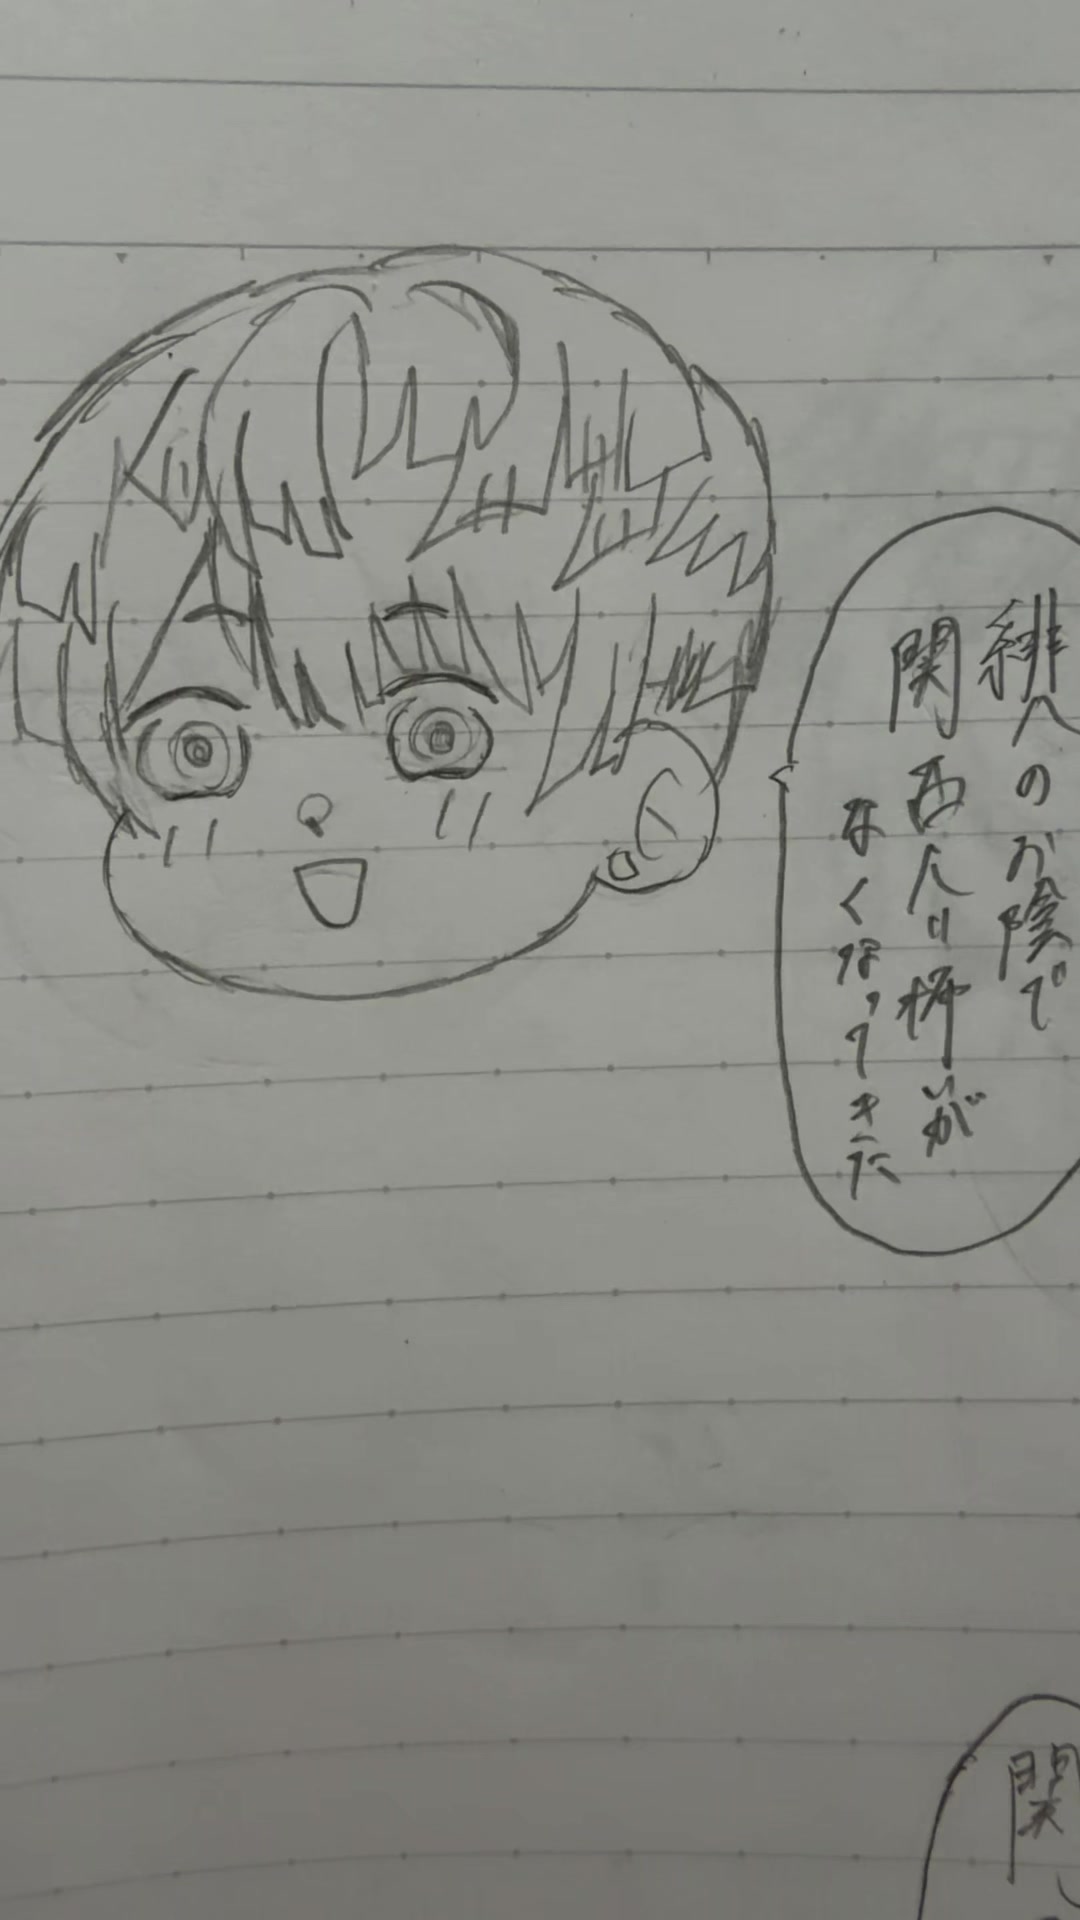 緋八のお陰で
関西人の 柄が
なくなってきた
関